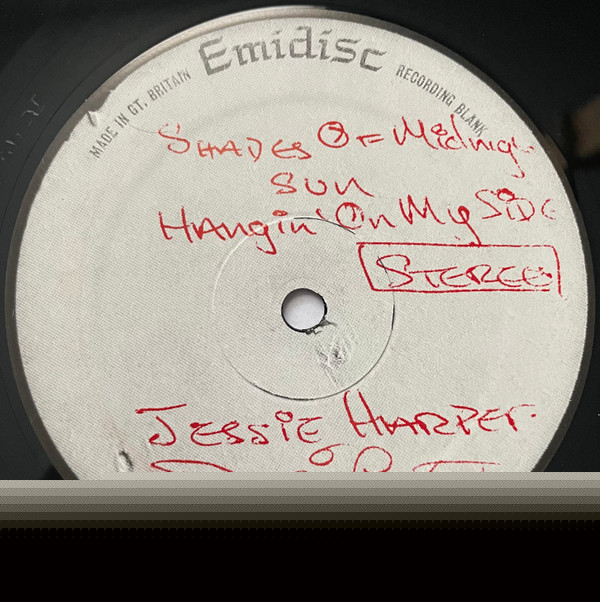 Emidisc
MADE IN GT. BRITAIN
RECORDING BLANK
SHADES OF Midnig
SUN
HANgin' On My SiDE
STEREO
JESSiE HARPER.